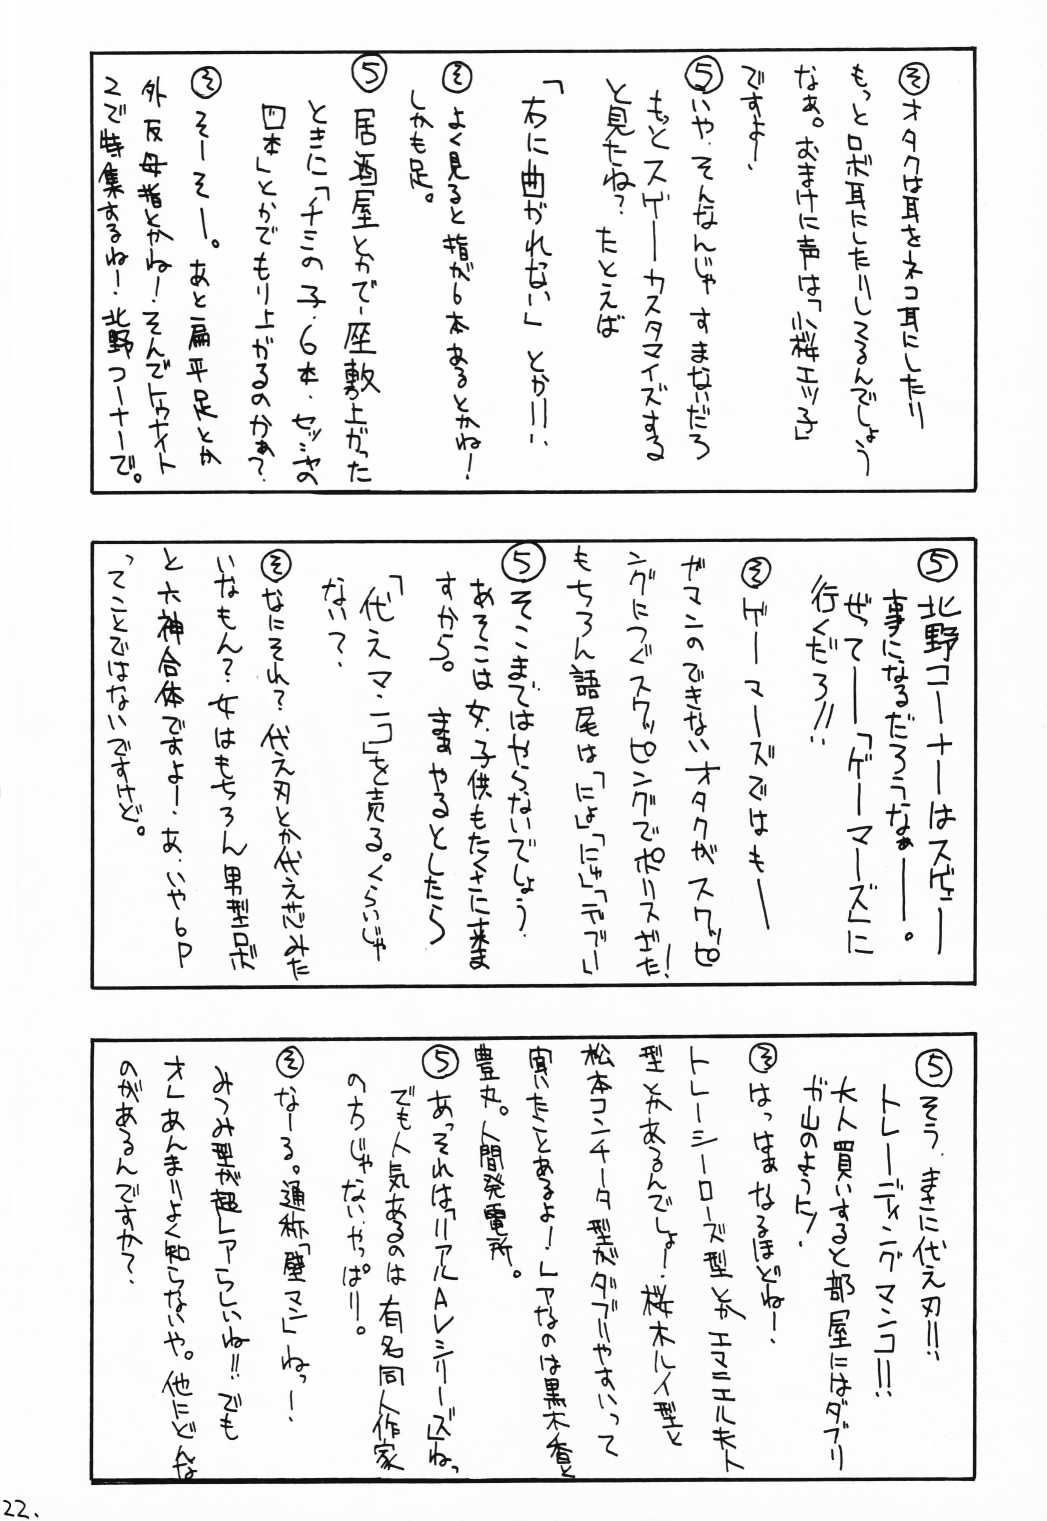 そ オタクは耳をネコ耳にしたり
もっとロボ耳にしたりしてるんでしょう
なぁ。おまけに声は「小桜エツ子」
ですよー、
5 いや、そんなんじゃすまないだろ
もっとスゲーカスタマイズする
と見たね?たとえば
「右に曲がれない」とか!!!
そ よく見ると指が6本あるとかね!
しかも足。
5 居酒屋とかで座敷が上がった
ときに「チミの子、6本、セッシャの
四本」とかでもり上がるのかぁ?
そ そーそー。あと扁平足とか
外反母指とかね!そんでトゥナイト
2で特集するね!北野コーナーで。
5 北野コーナーはスゲェー
事になるだろうなぁー。
ぜってー「ゲーマーズ」に
行くだろ!!
そ ゲーマーズではもー
ガマンのできないオタクがスワッピ
ングにつぐスワッピングでポリスざた!
もちろん語尾は「にょ」「にゅ」「デブー」
5 そこまではやらないでしょう。
あそこは女、子供もたくさに来ま
すから。まぁやるとしたら
「代えマンコ」を売る。くらいじゃ
ない?
そ なにそれ?代え刃とか代え芯みた
いなもん?女はもちろん男型ロボ
と六神合体ですよー、あ、いや6P
ってことではないですけど。
5 そう、まさに代え刃!!
トレーディングマンコ!!
大人買いすると部屋にはダブリ
が山のように!
そ はっはぁなるほどねー、
トレーシーローズ型とかエマニエル夫人
型とかあるんでしょー、桜木ルイ型と
松本コンチータ型がダブりやすいって
聞いたことあるよー!レアなのは黒木香と
豊丸。人間発電所。
5 あっそれは「リアルAVシリーズ」ねっ
でも人気あるのは有名同人作家
の方じゃない、やっぱり。
そ なーる。通称「壁マン」ねっー、
みつみ型が超レアらしいね!!でも
オレあんまりよく知らないや。他にどんな
のがあるんですか?
22.